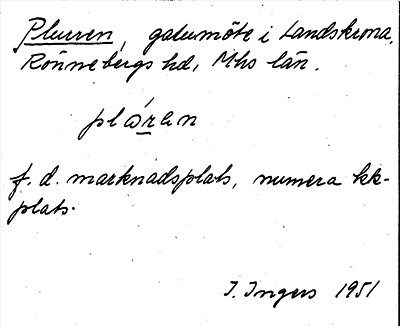 Plurren, gatumöte i Landskrona,
Rönnebergs hd, Mhs län.
plɷ́ran
f. d. marknadsplats, numera kk-
plats.
I. Ingers 1951